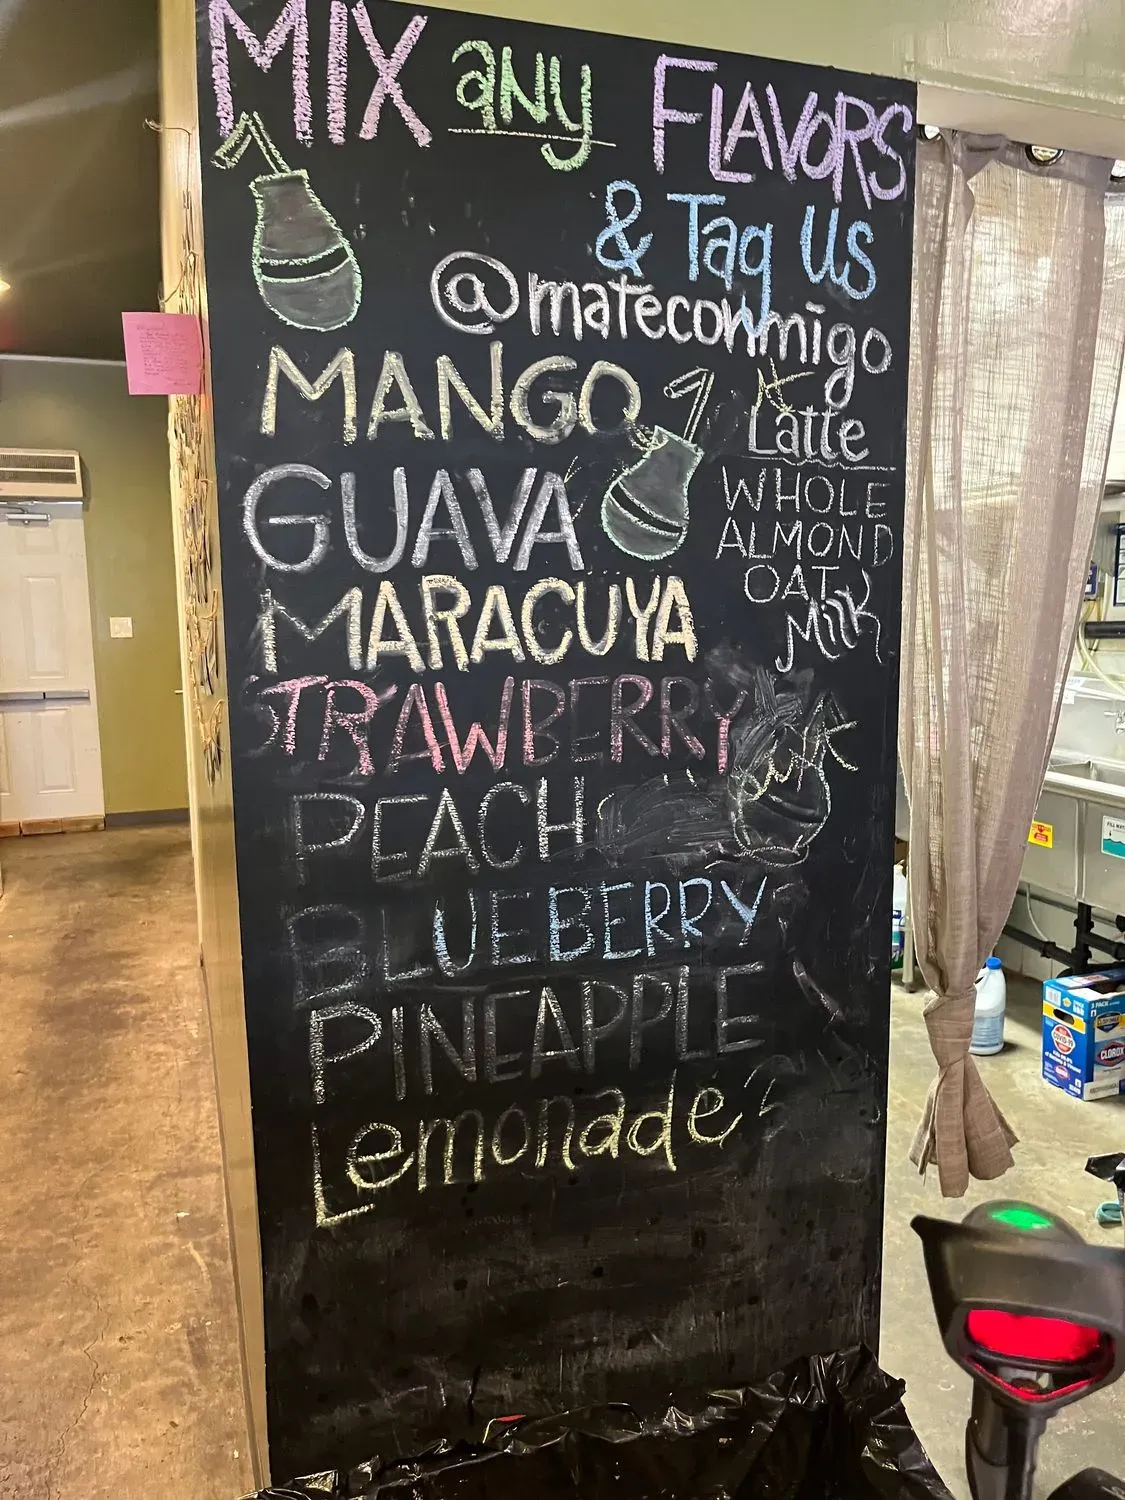 MIX any FLAVORS
& Tag Us
@mateconmigo
MANGO
GUAVA
MARACUYA
STRAWBERRY
PEACH
BLUEBERRY
PINEAPPLE
Lemonade
Latte
WHOLE
ALMOND
OAT
Milk
CLOROX